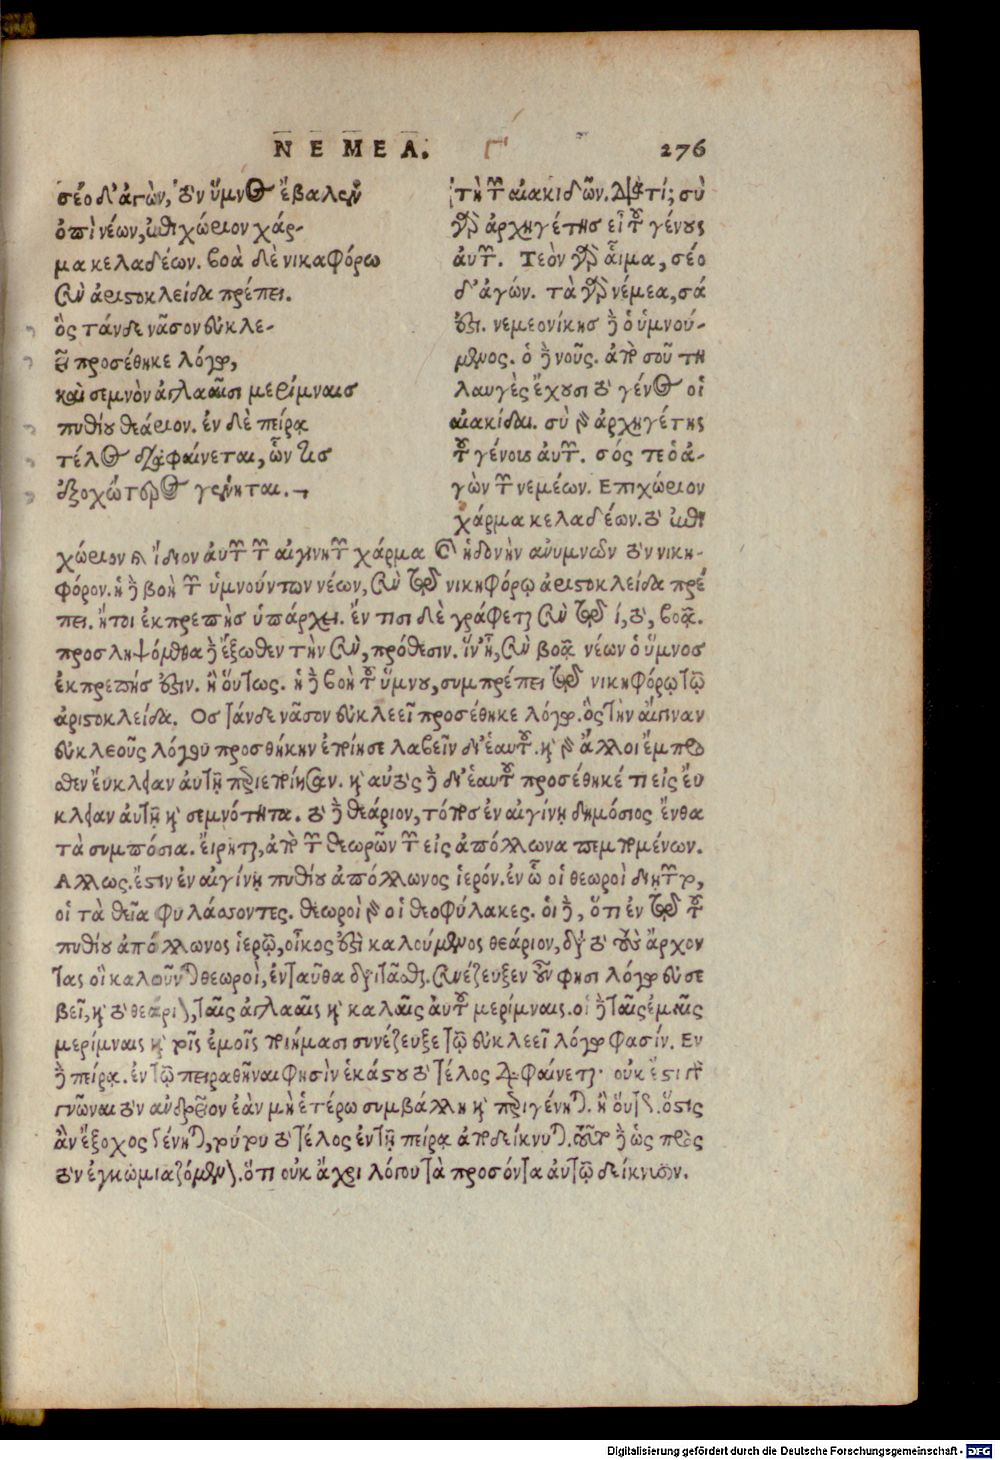 ΝΕΜΕΑ. 276
σέο δ' ἀγὼν, τὸν ὕμνος ἔβαλεν
ὀπὶ νέων, ἐπιχώριον χάρ-
μα κελαδέων. βοὰ δὲ νικαφόρω
σὺν ἀριστοκλείδα πρέπει.
ὃς τάνδε νᾶσον εὐκλε-
εῖ προσέθηκε λόγῳ,
καὶ σεμνὸν ἀγλααῖσι μερίμναις
πυθίου θεάριον. ἐν δὲ πείρᾳ
τέλος διαφαίνεται, ὧν τις
ἐξοχώτερος γένηται.
τὴν τῶν αἰακιδῶν. διατί; σὺ
γὰρ ἀρχηγέτης εἶ τοῦ γένους
αὐτῶν. Τεὸν γὰρ αἷμα, σέο
δ' ἀγών. τὰ γὰρ νέμεα, σά
ἐστι. νεμεονίκης δὲ ὁ ὑμνού-
μενος. ὁ δὲ νοῦς. ἀπὸ σοῦ τη
λαυγὲς ἔχουσι τὸ γένος οἱ
αἰακίδαι. σὺ γὰρ ἀρχηγέτης
τοῦ γένους αὐτῶν. σός τε ὁ ἀ-
γὼν τῶν νεμέων. Επιχώριον
χάρμα κελαδέων. τὸ ἐπι
χώριον καὶ ἴδιον αὐτῶν τῶν αἰγινητῶν χάρμα καὶ ἡδονὴν ἀνυμνῶν τὸν νικη-
φόρον. ἡ δὲ βοὴ τῶν ὑμνούντων νέων, σὺν τῷ νικηφόρῳ ἀριστοκλείδα πρέ
πει. ἤτοι ἐκπρεπὴς ὑπάρχει. ἔν τισι δὲ γράφεται σὺν τῷ ί, τὸ, βοᾷ.
προσληψόμεθα δὲ ἔξωθεν τὴν σὺν, πρόθεσιν. ἵν' ᾖ, σὺν βοᾷ νέων ὁ ὕμνος
ἐκπρεπής ἐστιν. ἢ οὕτως. ἡ δὲ βοὴ τοῦ ὕμνου, συμπρέπει τῷ νικηφόρῳ τῷ
ἀριστοκλείδα. Ος τάνδε νᾶσον εὐκλεεῖ προσέθηκε λόγῳ. ὃς τὴν αἴγιναν
εὐκλεοῦς λόγου προσθήκην ἐποίησε λαβεῖν δι' ἑαυτοῦ. καὶ γὰρ ἄλλοι ἔμπρο
σθεν εὔκλειαν αὐτῇ περιεποίησαν. καὶ αὐτὸς δὲ δι' ἑαυτοῦ προσέθηκέ τι εἰς εὔ
κλειαν αὐτῇ καὶ σεμνότητα. τὸ δὲ θεάριον, τόπος ἐν αἰγίνῃ δημόσιος ἔνθα
τὰ συμπόσια. εἴρηται, ἀπὸ τῶν θεωρῶν τῶν εἰς ἀπόλλωνα πεμπομένων.
Αλλως. ἔστιν ἐν αἰγίνῃ πυθίου ἀπόλλωνος ἱερόν. ἐν ᾧ οἱ θεωροὶ διῃτῶντο,
οἱ τὰ θεῖα φυλάσσοντες. θεωροὶ γὰρ οἱ θεοφύλακες. οἱ δὲ, ὅτι ἐν τῷ τοῦ
πυθίου ἀπόλλωνος ἱερῷ, οἶκος ἐστὶ καλούμενος θεάριον, διὰ τὸ τοὺς ἄρχον
τας οἳ καλοῦνται θεωροὶ, ἐνταῦθα διαιτᾶσθαι. συνέζευξεν οὖν φησι λόγῳ εὐσε
βεῖ, καὶ τὸ θεάριον, ταῖς ἀγλααῖς καὶ καλαῖς αὐτοῦ μερίμναις. οἱ δὲ ταῖς ἐμαῖς
μερίμναις καὶ τοῖς ἐμοῖς ποιήμασι συνέζευξε τῷ εὐκλεεῖ λόγῳ φασίν. Εν
δὲ πείρᾳ. ἐν τῷ πειραθῆναι φησὶν ἑκάστου τὸ τέλος διαφαίνεται· οὐκ ἔστι γὰρ
γνῶναι τὸν ἀνδρεῖον ἐὰν μὴ ἑτέρω συμβάλλῃ καὶ περιγένηται. ἢ οὕτως. ὅστις
ἂν ἔξοχος γένηται, τούτου τὸ τέλος ἐν τῇ πείρᾳ ἀποδείκνυται. τοῦτο δὲ ὡς πρὸς
τὸν ἐγκωμιαζόμενον. ὅτι οὐκ ἄχρι λόγου τὰ προσόντα αὐτῷ δείκνυσιν.
Digitalisierung gefördert durch die Deutsche Forschungsgemeinschaft - DFG